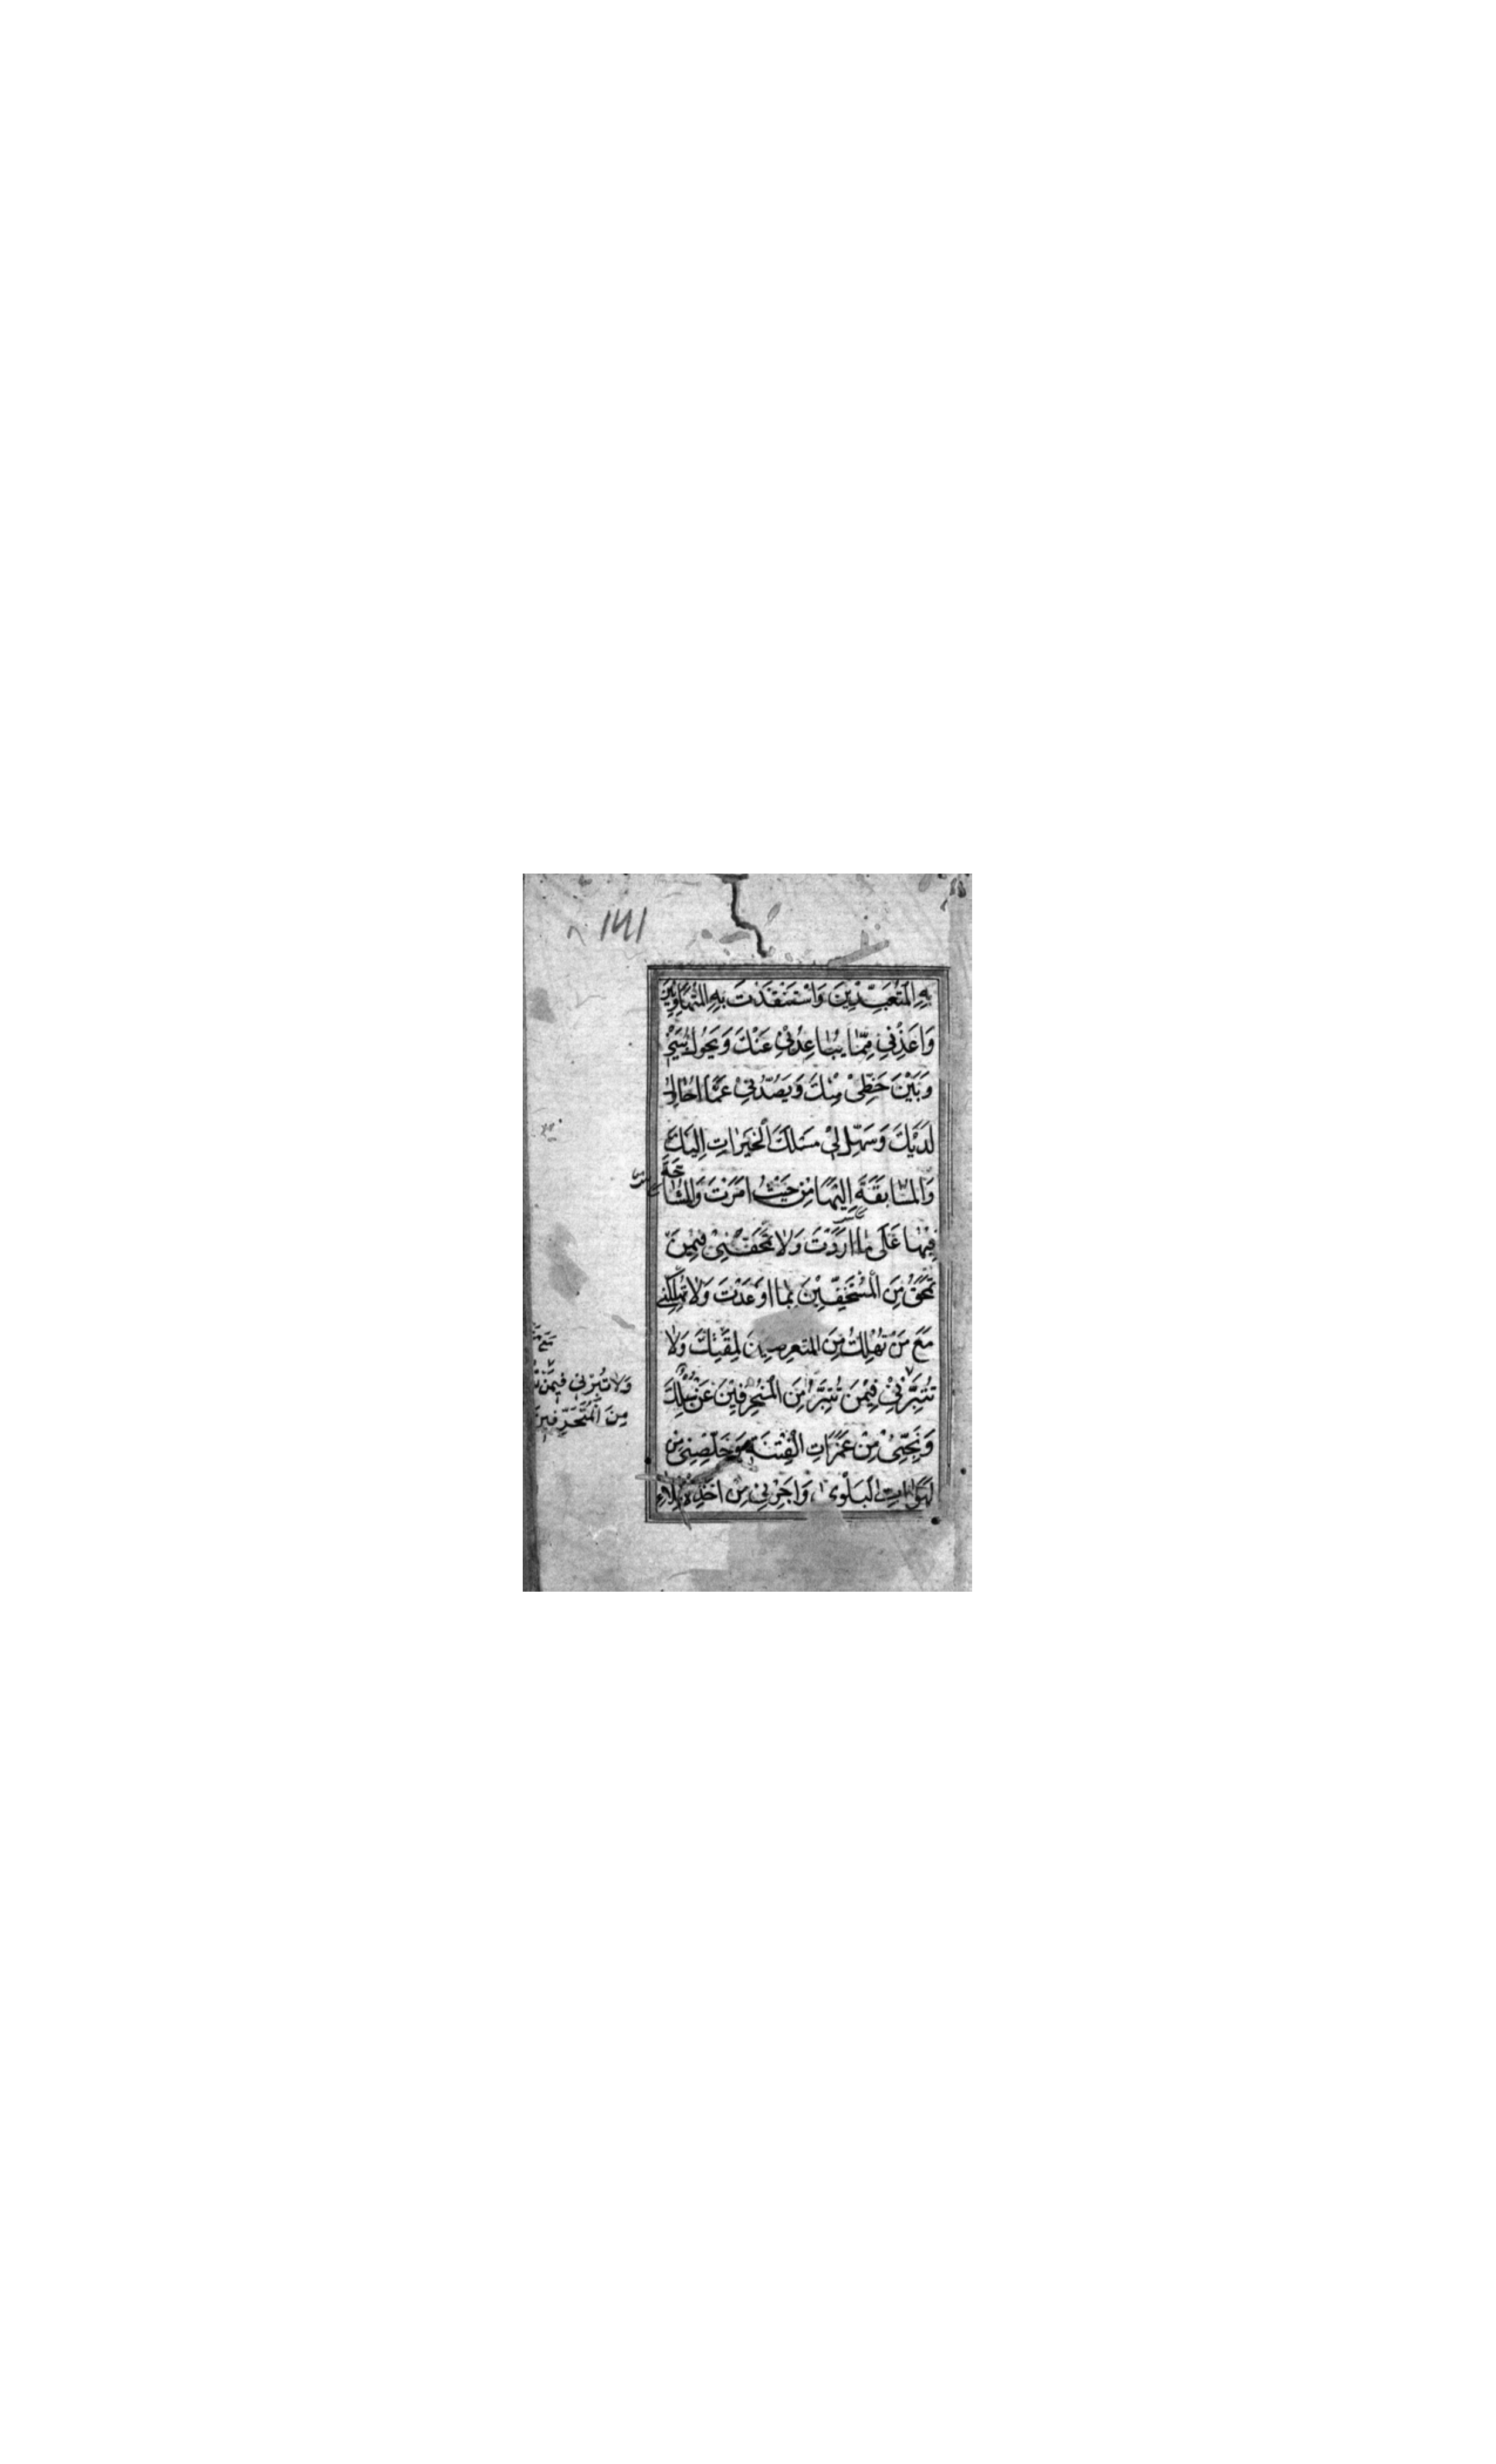 ١٧١
بِهِ الْمُتَعَبِّدِينَ وَاسْتَنْقَذْتَ بِهِ الْمُتَهَاوِنِينَ
وَاَعِذْنِي مِمَّا يُبَاعِدُنِي عَنْكَ وَيَحُولُ بَيْنِي
وَبَيْنَ حَظِّي مِنْكَ وَيَصُدُّنِي عَمَّا اُحَاوِلُ
لَدَيْكَ وَسَهِّلْ لِي مَسْلَكَ الْخَيْرَاتِ اِلَيْكَ
وَالْمُسَابَقَةَ اِلَيْهَا مِنْ حَيْثُ اَمَرْتَ وَالْمُشَاحَّةَ
فِيهَا عَلَى مَا اَرَدْتَ وَلَا تَمْحَقْنِي فِيمَنْ
تَمْحَقُ مِنَ الْمُسْتَخِفِّينَ بِمَا اَوْعَدْتَ وَلَا تُهْلِكْنِي
مَعَ مَنْ تُهْلِكُ مِنَ الْمُتَعَرِّضِينَ لِمَقْتِكَ وَلَا
تُتَبِّرْنِي فِيمَنْ تُتَبِّرُ مِنَ الْمُنْحَرِفِينَ عَنْ سُبُلِكَ
وَنَجِّنِي مِنْ غَمَرَاتِ الْفِتْنَةِ وَخَلِّصْنِي مِنْ
لَهَوَاتِ الْبَلْوَى وَاَجِرْنِي مِنْ اَخْذِ الْاِمْلَاءِ
وَلَا تُبِرْنِي فِيمَنْ
مِنَ الْمُتَحَرِّفِينَ